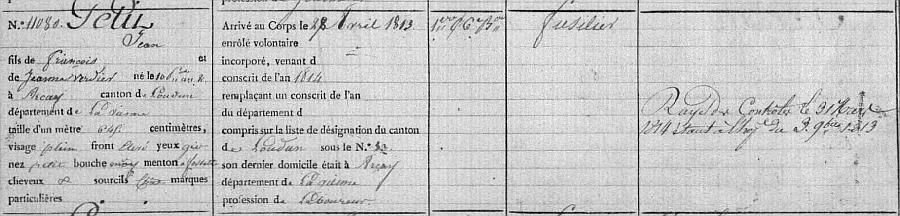 N.° 11080. Petit
Jean
fils de françois et
de Jeanne Verdier né le 10
à Arçay canton de Loudun
département de La Vienne
taille d'un mètre 645 centimètres,
visage plein front élevé yeux gris
nez petit bouche moy menton à fossette
cheveux & sourcils marques
particulières.
Arrivé au Corps le 28 Avril 1813
enrôlé volontaire
incorporé, venant d
conscrit de l'an 1814
remplaçant un conscrit de l'an
du département d
compris sur la liste de désignation du canton
de Loudun sous le N.°
son dernier domicile était à Arçay
département de La Vienne
profession de Laboureur
1er 6e Bon
fusilier
Rayé des Controles le 31 Mars
1814 étant à l'hop. de 9bre 1813